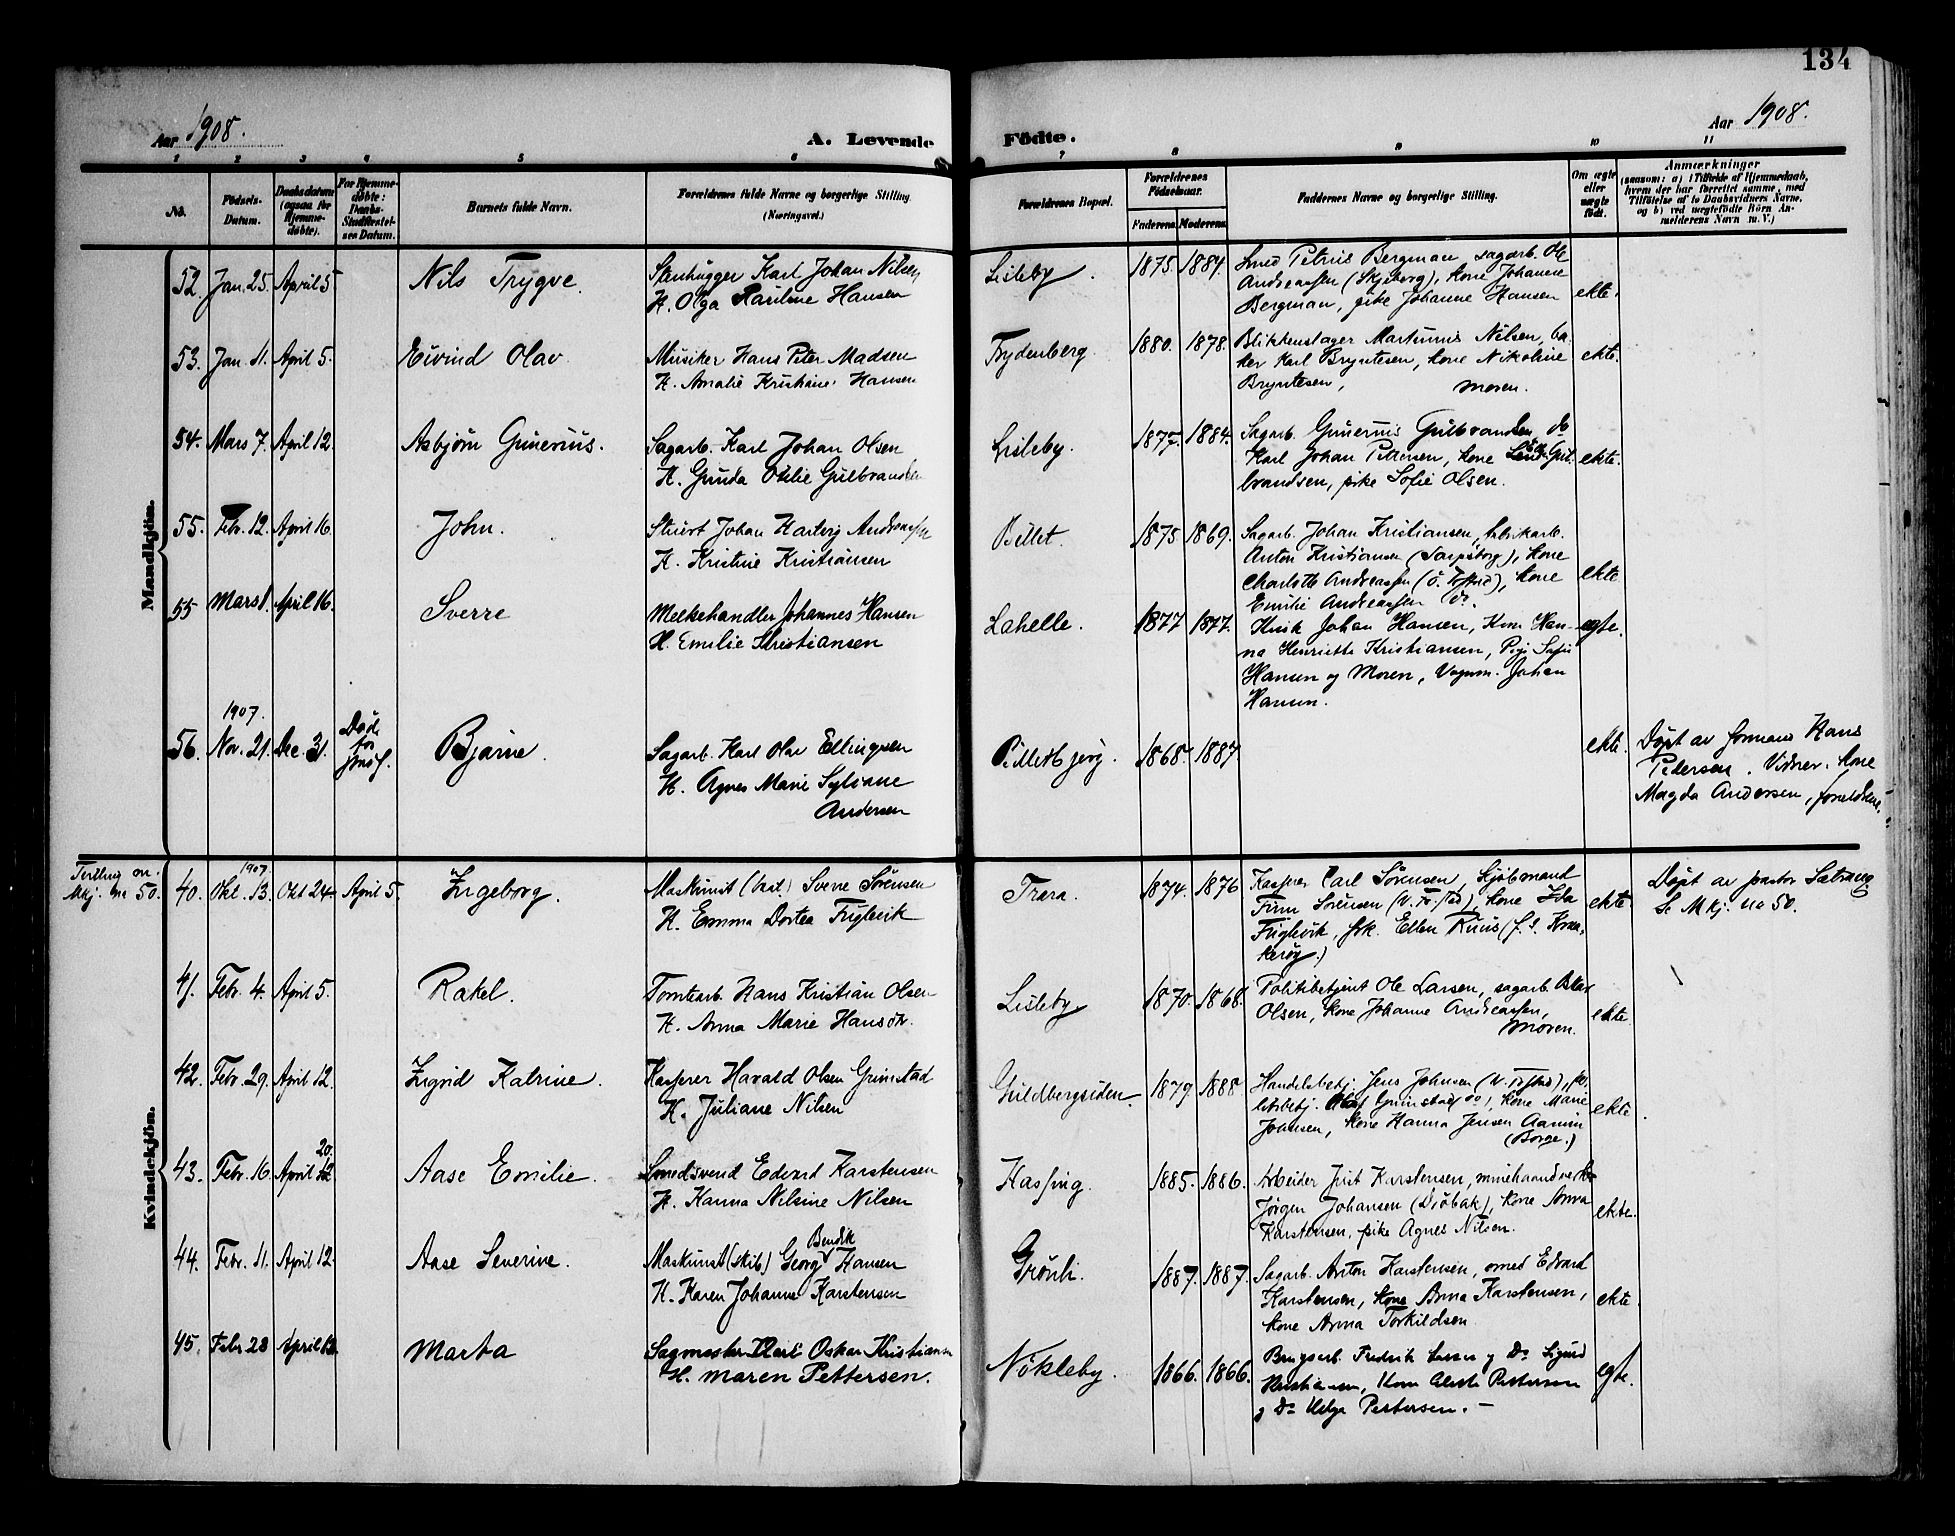 134
Aar 1908.
A. Levende Födte.
Aar 1908.
1 2 3 4 5 6 7 8 9 10 11
No.
Födsels-Datum.
Daabsdatum (ogsaa for Hjemme-døbte).
For Hjemme-døbte: Daabs-Stadfæstel-ses Datum.
Barnets fulde Navn.
Forældrenes fulde Navne og borgerlige Stilling. (Næringsvei.)
Forældrenes Bopæl.
Forældrenes Födselsaar.
Faderens Moderens
Faddernes Navne og borgerlige Stilling.
Om ægte eller uægte födt.
Anmærkninger
(saasom: a) i Tilfælde af Hjemmedaab, hvem der har forrettet samme, med Tilföielse af to Daabsvidners Navne, og b) ved uægtefödte Börn An-melderens Navn m. V.)
Mandkjön.
52. Jan. 25. April 5 Nils Trygve.
Stenhugger Karl Johan Nilsen
H. Olga Pauline Hansen
Lisleby. 1875. 1884.
Smed Petrus Bergman sagarb. Ole
Andreassen (Skjeberg), kone Johanne
Bergman, pike Johanne Hansen
ekte.
53. Jan. 11. April 5. Eivind Olav
Musiker Hans Peter Madsen
H. Amalie Kristiane Hansen
Trydenberg. 1880. 1878.
Blikkenslager Martinius Nilsen, ba-
ker Karl Bryntesen, kone Nikoline
Bryntesen, moren.
ekte.
54. Mars 7. April 12. Asbjörn Gunerius.
Sagarb. Karl Johan Olsen
H. Gunda Otilie Gulbrandsen
Lisleby. 1877. 1884.
Sagarb. Gunerius Gulbrandsen do
Karl Johan Pettersen, kone Gul-
brandsen, pike Sofie Olsen.
ekte.
55. Febr. 12. April 16 John.
Stuert Johan Hartvig Andreassen
H. Kristine Kristiansen
Billet. 1875 1869.
Sagarb. Johan Kristiansen, fabrikarb.
Anton Kristiansen (Sarpsborg), kone
Charlotte Andreassen (Ö. Fr.stad), kone
Emilie Andreassen do.
ekte
55 Mars 1. April 16. Sverre
Melkehandler Johannes Hansen
H. Emilie Kristiansen
Lahelle. 1877 1877.
Johan Hansen, Kone Han-
na Henriette Kristiansen, Pige Sofie
Hansen og Moren, Vognm. Johan
Hansen.
egte.
1907.
56. Nov. 21. Dec. 31. Död Bjarne.
Sagarb. Karl Olav Ellingsen
H. Agnes Marie Sylviane
Andersen
1868. 1887
ekte.
Döpt av formann Hans
Pedersen. Vidner. kone
Magda Andersen, foreldrene.
Kvindekjön.
Tvilling m.
Mkj. no 50.
1907
40. Okt. 13. Okt 24. April 5. Ingeborg.
Maskinist (vest.) Svene Sörensen
H. Emma Dortea Fuglevik
Trara. 1874. 1876
Kasserer Carl Sörensen, Sjöbmand
Finn Sörensen (V. Fr.stad), kone Ida
Fuglevik, frk. Ellen
ekte.
Döpt av pastor Sætrang
Se Mkj. no 50.
41. Febr. 4. April 5. Rakel.
Tomtearb. Hans Kristian Olsen
H. Anna Marie Hansdtr.
Lisleby 1870. 1868.
Politibetjent Ole Larsen, sagarb.
Olsen, kone Johanne Andreassen,
moren.
ekte.
42. Febr. 29. April 12. Ingrid Katrine.
Kasserer Harald Olsen Grimstad
H. Juliane Nilsen
Guldbergsiden. 1879. 1888
Handelsbetj. Jens Johnsen (V. Fr.stad),
Grimstad do, kone Marie
Johnsen, kone Hanna Jensen Aannin
(Borge.)
ekte.
43. Febr. 16. April 12 20. Aase Emilie.
Smedsvend Edvart Karstensen
H. Hanna Nilsine Nilsen
Hassing. 1885. 1886.
Arbeider Just Karstensen, minehaandverker
Jörgen Johansen (Dröbak), kone Anna
Karstensen, pike Agnes Nilsen.
ekte.
44. Febr. 11. April 12. Aase Severine.
Bendik
Maskinist (skib) Georg Hansen
H. Karen Johanne Karstensen
Grönli. 1887. 1887.
Sagarb. Anton Karstensen, smed Edvard
Karstensen, kone Anna Karstensen,
kone Anna Torkildsen
ekte.
45. Febr 28 April 12 Marta
Sagmester Karl Oskar Kristiansen
H. Maren Pettersen.
Nökleby. 1866. 1866.
Brugsarb. Fredrik Larsen og Do Sigurd
Kristiansen, Kone Pettersen
og Do Helga Pettersen. —
egte.